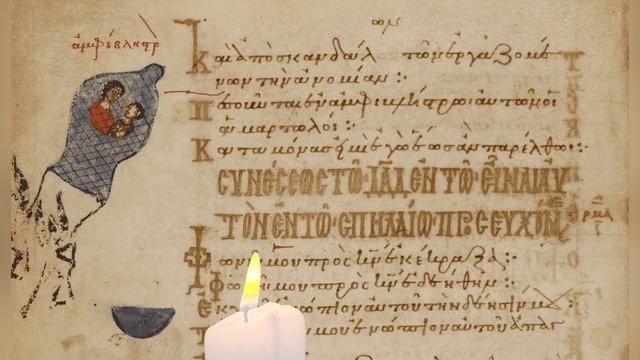 ἀμφίβληστρ
Καὶ ἀπὸ σκανδάλ τῶν ἐργαζομέ
νων τὴν ἀνομίαν :
πεσοῦνται ἐν ἀμφιβλήστρωι αὐτῶν οἱ
ἁμαρτωλοί :
Κατὰ μόνας εἰμὶ ἐγὼ ἕως ἂν παρέλθω :
ΣΥΝΕΣΕΩΣ ΤΩ ΔΑΔ ΕΝ ΤΩ ΕΙΝΑΙ ΑΥ
ΤΟΝ ΕΝ ΤΩ ΣΠΗΛΑΙΩ ΠΡΣΕΥΧΟΜ
Φωνῇ μου πρὸς κν ἐκέκραξα :
Φωνῇ μου πρὸς κν ἐδεήθην :
ἐνώπιον αὐτοῦ τὴν δέησίν
μου ἐνώπιον αὐτοῦ